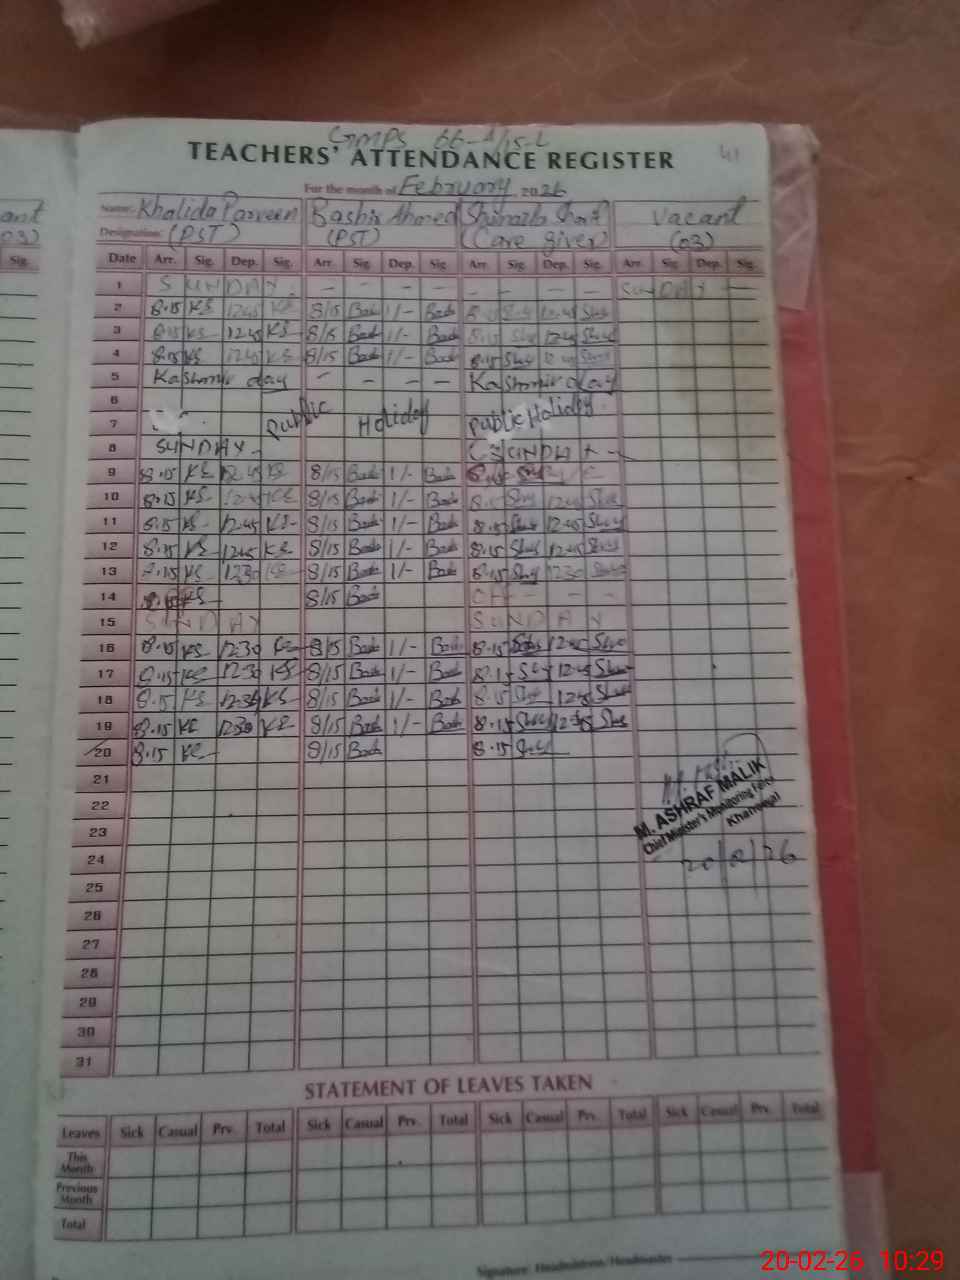 ant
03)
Sig.
GMPS 66-A/15-L
41
TEACHERS' ATTENDANCE REGISTER
For the month of February 2026
Name: Khalida Parveen Bashir Ahmed Vacant
Designation: (PST) (PST) (Care giver) (03)
Date Arr. Sig. Dep. Sig. Arr. Sig. Dep. Sig. Arr. Sig. Dep. Sig. Arr. Sig. Dep. Sig.
1 SUNDAY - - - - - - - - SUNDAY -
2 8.15 KS 12.45 KS 8/15 Bash 1/- Bash 8.15 12.45
3 8.15 KS- 12.45 KS- 8/15 Bash 1/- Bash 8.15 12.45
4 8.15 KS 12.45 KS 8/15 Bash 1/- Bash 8.15 12.45
5 Kashmir day - - - - Kashmir day
6
7 Public Holiday Public Holiday.
8 SUNDAY - SUNDAY -
9 8.15 KS 12.45 KS 8/15 Bash 1/- Bash
10 8.15 KS- 12.45 KS 8/15 Bash 1/- Bash 8.15 12.45
11 8.15 KS- 12.45 KS- 8/15 Bash 1/- Bash 8.15 12.45
12 8.15 KS 12.45 KS- 8/15 Bash 1/- Bash 8.15 12.45
13 8.15 KS 12.30 KS 8/15 Bash 1/- Bash 8.15 12.30
14 8.15 KS- 8/15 Bash - -
15 SUNDAY SUNDAY
16 8.15 KS 12.30 KS 8/15 Bash 1/- Bash 8.15 12.45
17 8.15 KS 12.30 KS 8/15 Bash 1/- Bash 8.15 12.45
18 8.15 KS 12.30 KS- 8/15 Bash 1/- Bash 8.15 12.45
19 8.15 KS 12.30 KS- 8/15 Bash 1/- Bash 8.15
20 8.15 KS- 8/15 Bash 8.15
21
M. ASHRAF MALIK
Chief Minister's Monitoring Force
Khanewal
20/02/26
22
23
24
25
26
27
28
29
30
31
STATEMENT OF LEAVES TAKEN
Leaves Sick Casual Prv. Total Sick Casual Prv. Total Sick Casual Prv. Total Sick Casual Prv. Total
This Month
Previous Month
Total
Signature: Headmistress/Headmaster
20-02-26 10:29